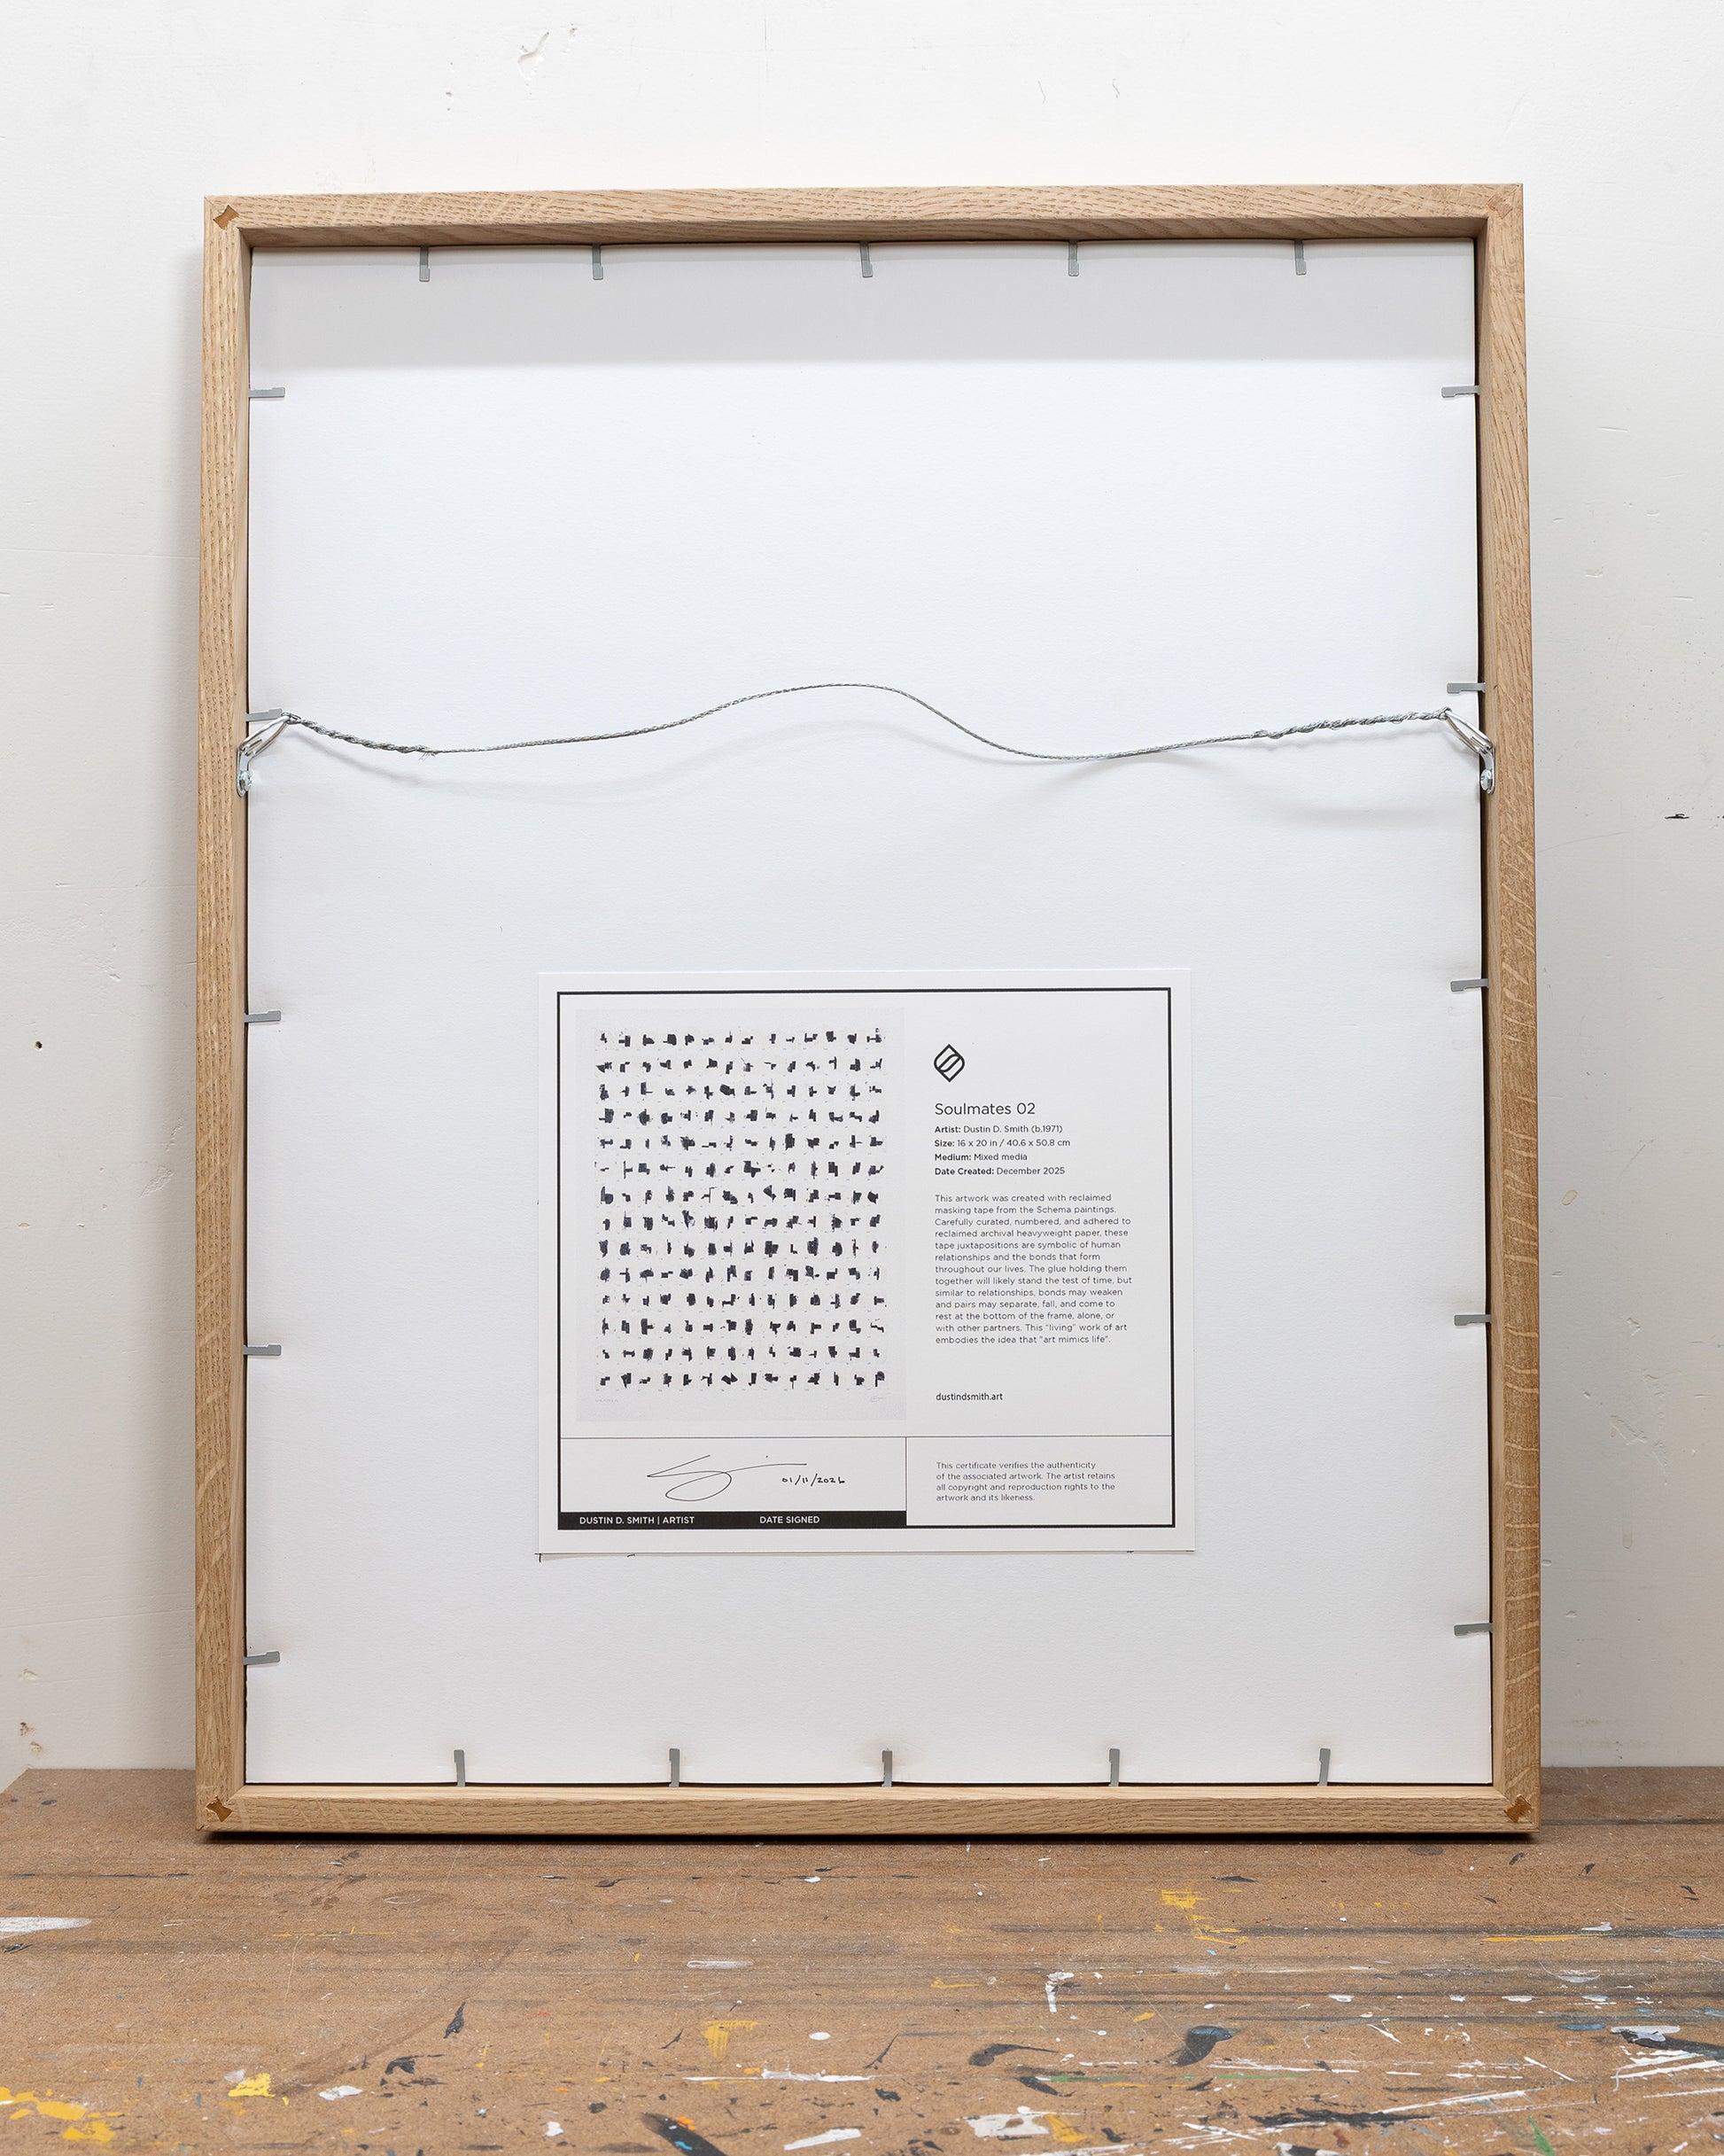 Soulmates 02
Artist: Dustin D. Smith (b.1971)
Size: 16 x 20 in / 40.6 x 50.8 cm
Medium: Mixed media
Date Created: December 2025
This artwork was created with reclaimed
masking tape from the Schema paintings.
Carefully curated, numbered, and adhered to
reclaimed archival heavyweight paper, these
tape juxtapositions are symbolic of human
relationships and the bonds that form
throughout our lives. The glue holding them
together will likely stand the test of time, but
similar to relationships, bonds may weaken
and pairs may separate, fall, and come to
rest at the bottom of the frame, alone, or
with other partners. This "living" work of art
embodies the idea that "art mimics life".
dustindsmith.art
01/11/2026
DUSTIN D. SMITH | ARTIST DATE SIGNED
This certificate verifies the authenticity
of the associated artwork. The artist retains
all copyright and reproduction rights to the
artwork and its likeness.